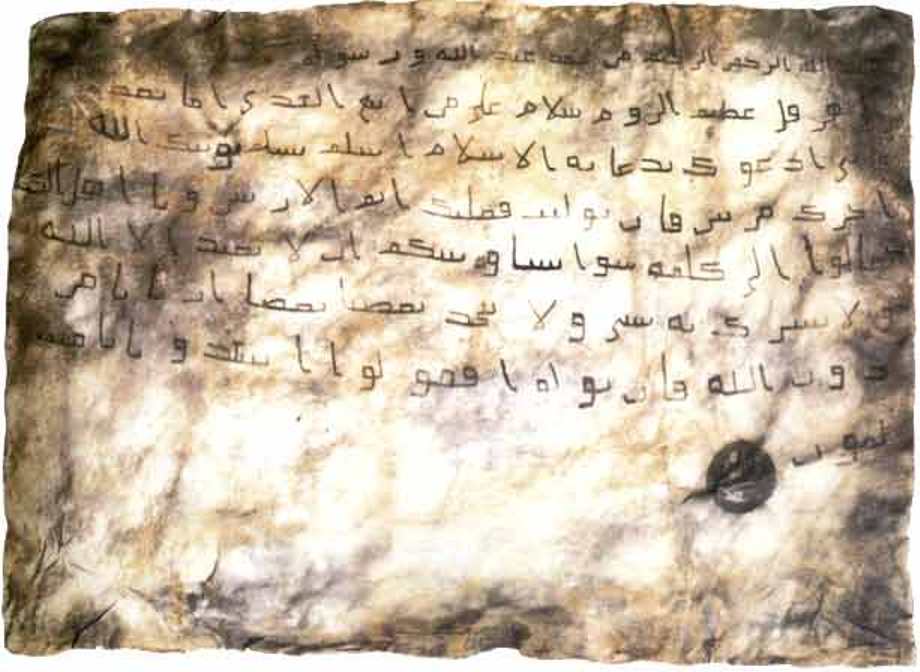 الله الرحمن الرحيم من محمد عبد الله و رسوله
هر قل عظيم الروم سلام على من اتبع الهدى اما بعد
ادعوك بدعايه الاسلام اسلم تسلم يوتك الله
اجرك مرتين فان توليت فعليك اثم الاريسين و يا اهل الكتا
تعالوا الى كلمه سوا بيننا وبينكم ان لا نعبد الا الله
و لا نشرك به شى و لا يتخذ بعضنا بعضا اربابا من
دون الله فان تولوا فقولوا اشهدوا بانا مسـ
لمون